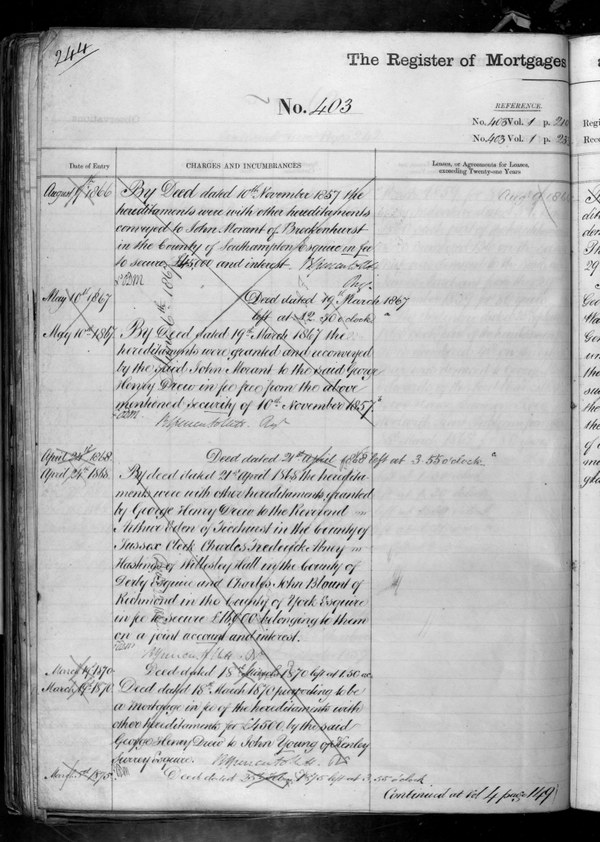 244
The Register of Mortgages
No. 403
REFERENCE.
No. 403 Vol. 1 p. 210
No. 403 Vol. 1 p. 25
Date of Entry
CHARGES AND INCUMBRANCES
Leases, or Agreements for Leases, exceeding Twenty-one Years
August 9th 1866
By Deed dated 10th November 1857 the
hereditaments were with other hereditaments
conveyed to John Morant of Brockenhurst
in the County of Southampton Esquire in fee
to secure £45,000 and interest.
Reg.
May 10th 1867
Deed dated 19th March 1867
left at 12.30 o'clock
May 10th 1867
By Deed dated 19th March 1867 the
hereditaments were granted and reconveyed
by the said John Morant to the said George
Henry Drew in fee free from the above
mentioned security of 10th November 1857.
April 24th 1868
Deed dated 21st April 1868 left at 3.55 o'clock
April 24th 1868
By deed dated 21st April 1868 the heredita
ments were with other hereditaments granted
by George Henry Drew to the Reverend
Arthur Eden of Ticehurst in the County of
Sussex Clerk Charles Frederick Abney
Hastings of Willesley Hall in the County of
Derby Esquire and Charles John Blount of
Richmond in the County of York Esquire
in fee to secure belonging to them
on a joint account and interest.
March 19th 1870
Deed dated 18th March 1870 left at 1.30 oc.
March 19th 1870
Deed dated 18th March 1870 purporting to be
a mortgage in fee of the hereditaments with
other hereditaments for £4500 by the said
George Henry Drew to John Young of Kenley
Surrey Esquire.
1875
Deed dated 1875 left at 3.55 o'clock
Continued at Vol 4 page 149